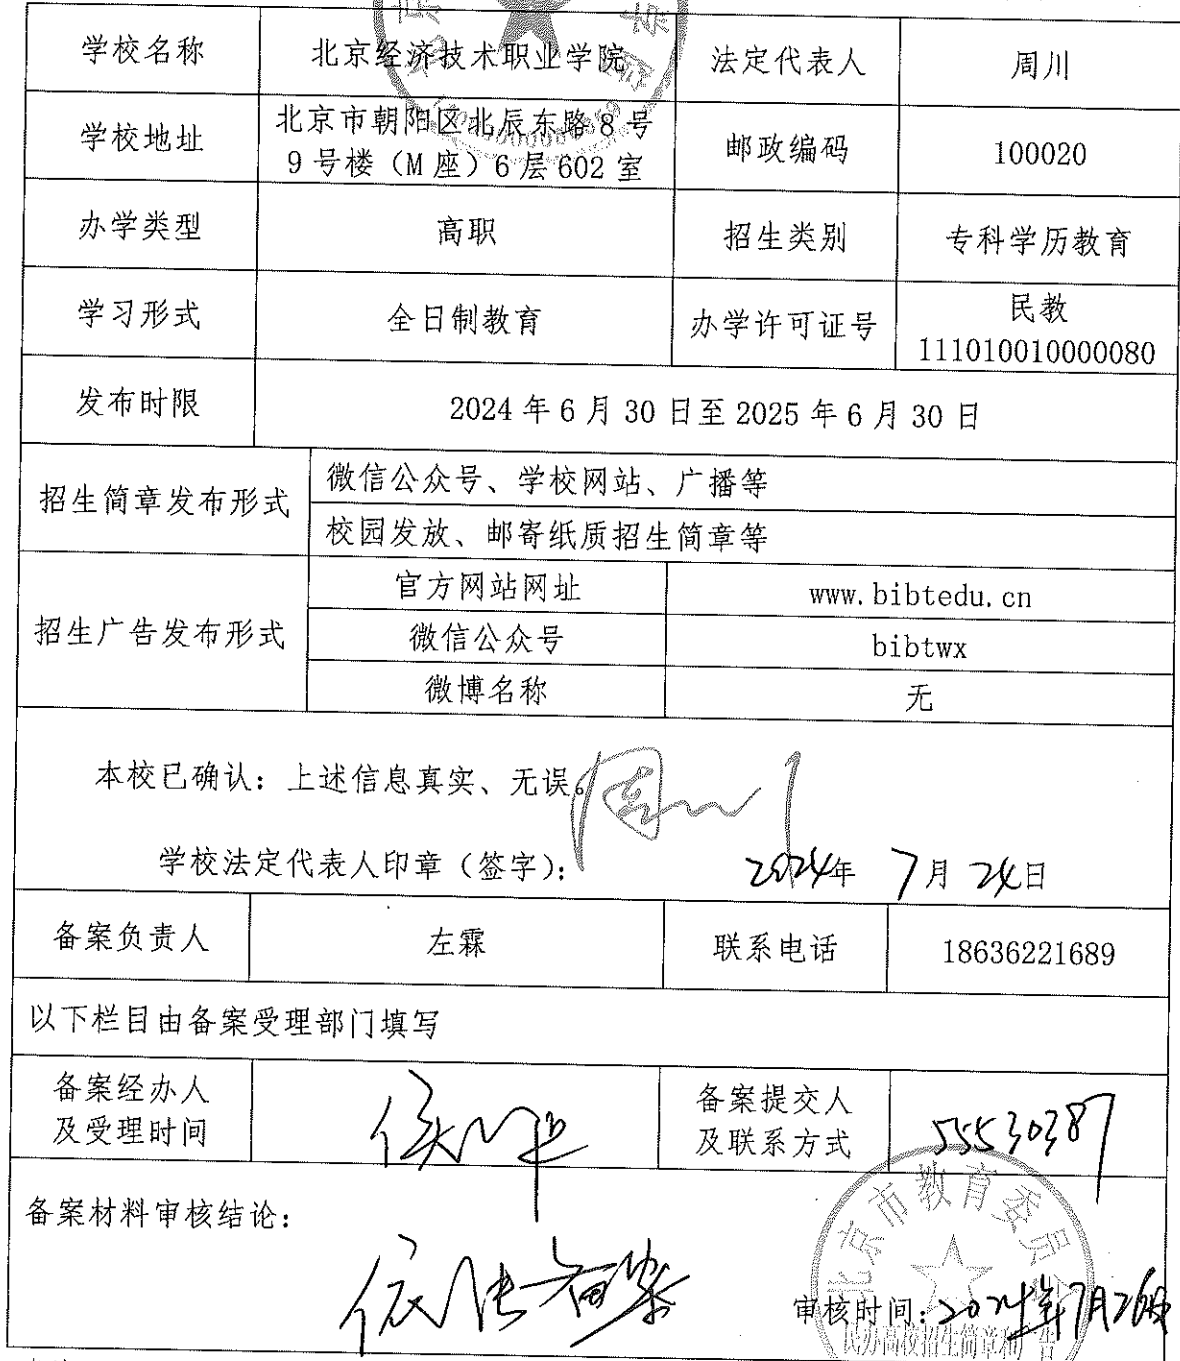 学校名称 北京经济技术职业学院 法定代表人 周川
学校地址 北京市朝阳区北辰东路 8 号 邮政编码 100020
9 号楼（M 座）6 层 602 室
办学类型 高职 招生类别 专科学历教育
学习形式 全日制教育 办学许可证号 民教
111010010000080
发布时限 2024 年 6 月 30 日至 2025 年 6 月 30 日
招生简章发布形式 微信公众号、学校网站、广播等
校园发放、邮寄纸质招生简章等
招生广告发布形式 官方网站网址 www.bibtedu.cn
微信公众号 bibtwx
微博名称 无
本校已确认：上述信息真实、无误。
周川
学校法定代表人印章（签字）： 2024年 7月 24日
备案负责人 左霖 联系电话 18636221689
以下栏目由备案受理部门填写
备案经办人 备案提交人
及受理时间 及联系方式 55530387
北京市教育委员会
备案材料审核结论：
依法备案
审核时间：2024年7月26日
民办高校招生简章和广告